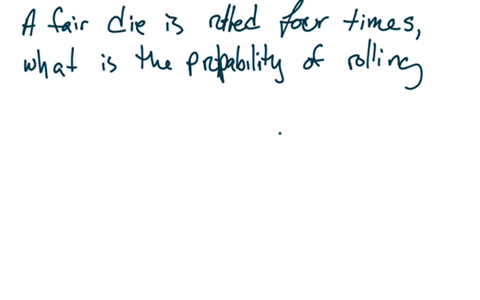 A fair die is rolled four times,
what is the probability of rolling